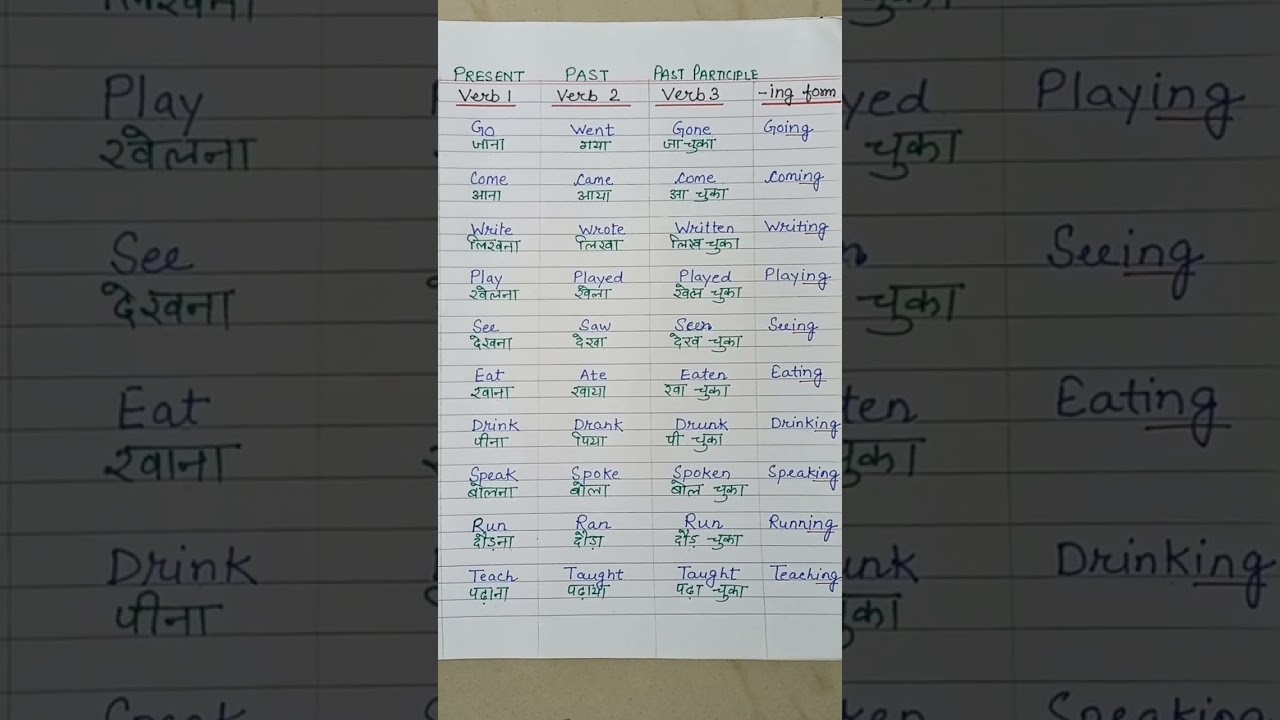 PRESENT PAST PAST PARTICIPLE
Verb 1 Verb 2 Verb 3 -ing form
Go Went Gone Going
जाना गया जा चुका
Come Came Come Coming
आना आया आ चुका
Write Wrote Written Writing
लिखना लिखा लिख चुका
Play Played Played Playing
खेलना खेला खेल चुका
See Saw Seen Seeing
देखना देखा देख चुका
Eat Ate Eaten Eating
खाना खाया खा चुका
Drink Drank Drunk Drinking
पीना पिया पी चुका
Speak Spoke Spoken Speaking
बोलना बोला बोल चुका
Run Ran Run Running
दौड़ना दौड़ा दौड़ चुका
Teach Taught Taught Teaching
पढ़ाना पढ़ाया पढ़ा चुका
Play
खेलना
See
देखना
Eat
खाना
Drink
पीना
yed Playing
चुका
Seeing
चुका
ten Eating
चुका
unk Drinking
चुका